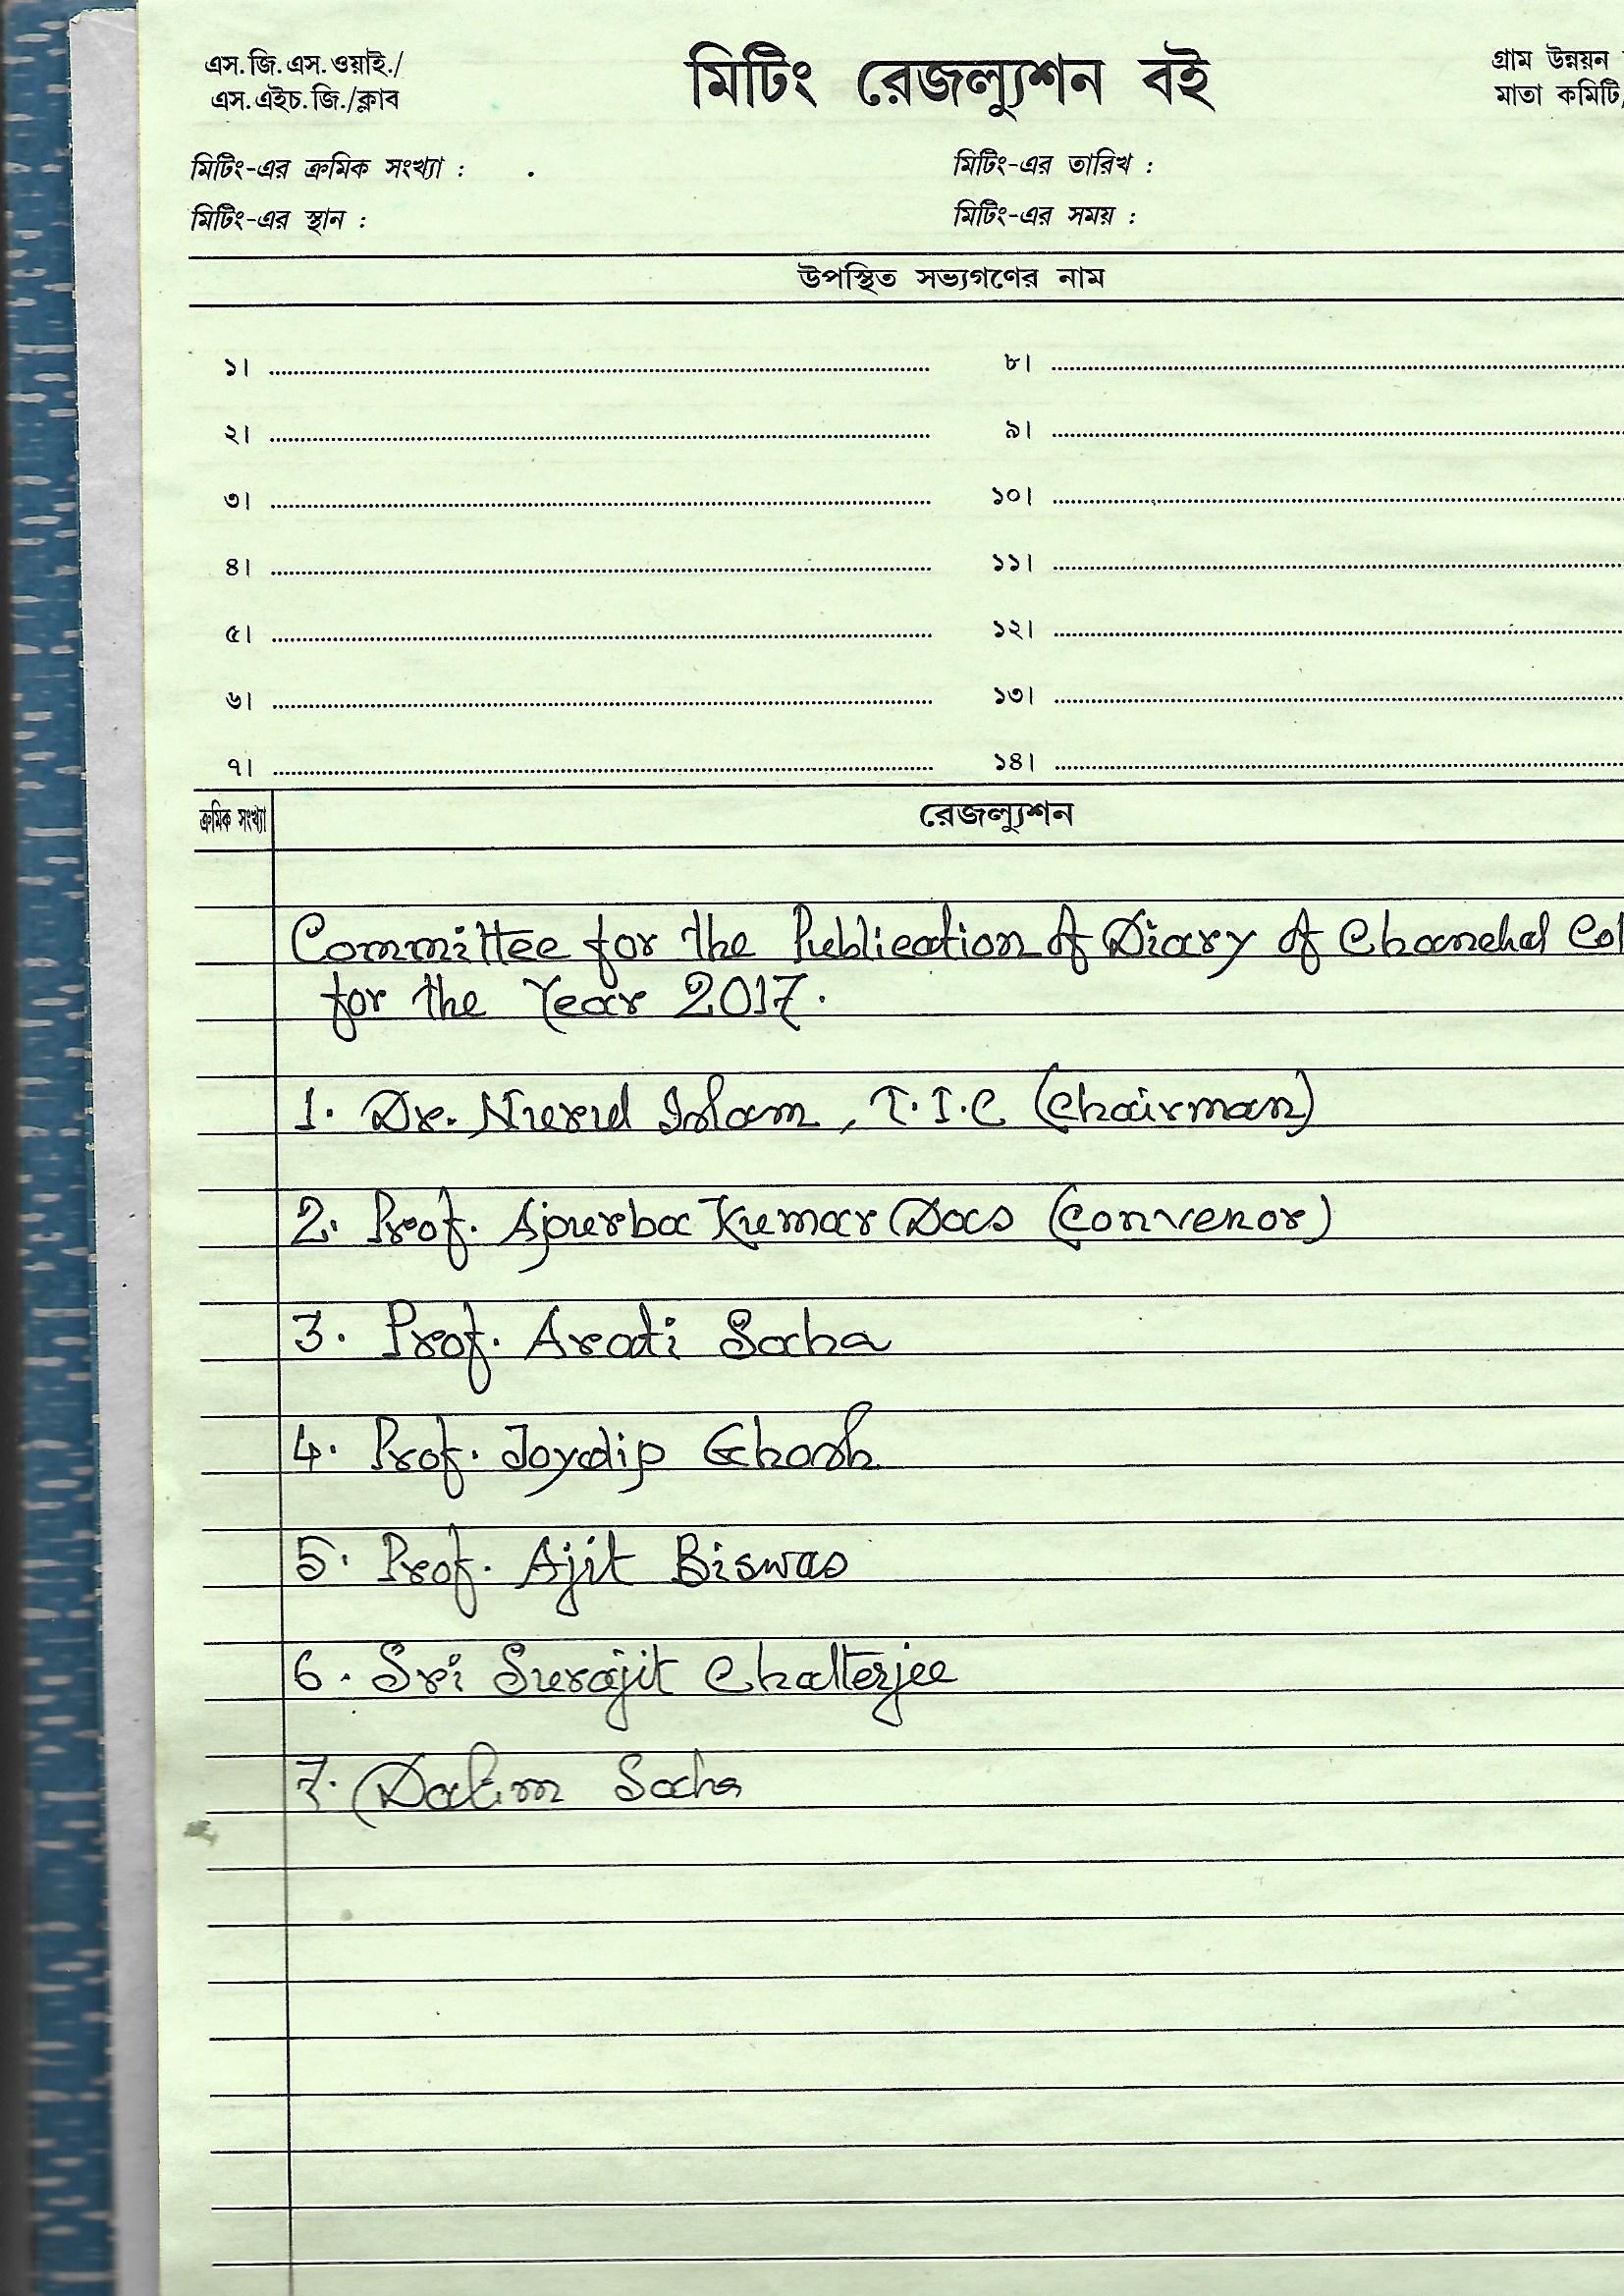 এস.জি.এস.ওয়াই./
এস.এইচ.জি./ক্লাব
মিটিং রেজল্যুশন বই
গ্রাম উন্নয়ন
মাতা কমিটি
মিটিং-এর ক্রমিক সংখ্যা :
মিটিং-এর তারিখ :
মিটিং-এর স্থান :
মিটিং-এর সময় :
উপস্থিত সভ্যগণের নাম
১।
২।
৩।
৪।
৫।
৬।
৭।
৮।
৯।
১০।
১১।
১২।
১৩।
১৪।
ক্রমিক সংখ্যা
রেজল্যুশন
Committee for the Publication of Diary of Chanchal Col
for the Year 2017.
1. Dr. Nurul Islam, T.I.C (Chairman)
2. Prof. Apurba Kumar Das (Convenor)
3. Prof. Arati Saha
4. Prof. Joydip Ghosh
5. Prof. Ajit Biswas
6. Sri Surajit Chatterjee
7. Dalim Saha